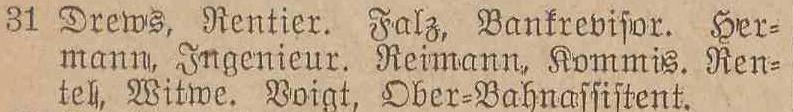 31 Drews, Rentier. Falz, Bankrevisor. Her-
mann, Ingenieur. Reimann, Kommis. Ren-
tel, Witwe. Voigt, Ober-Bahnassistent.